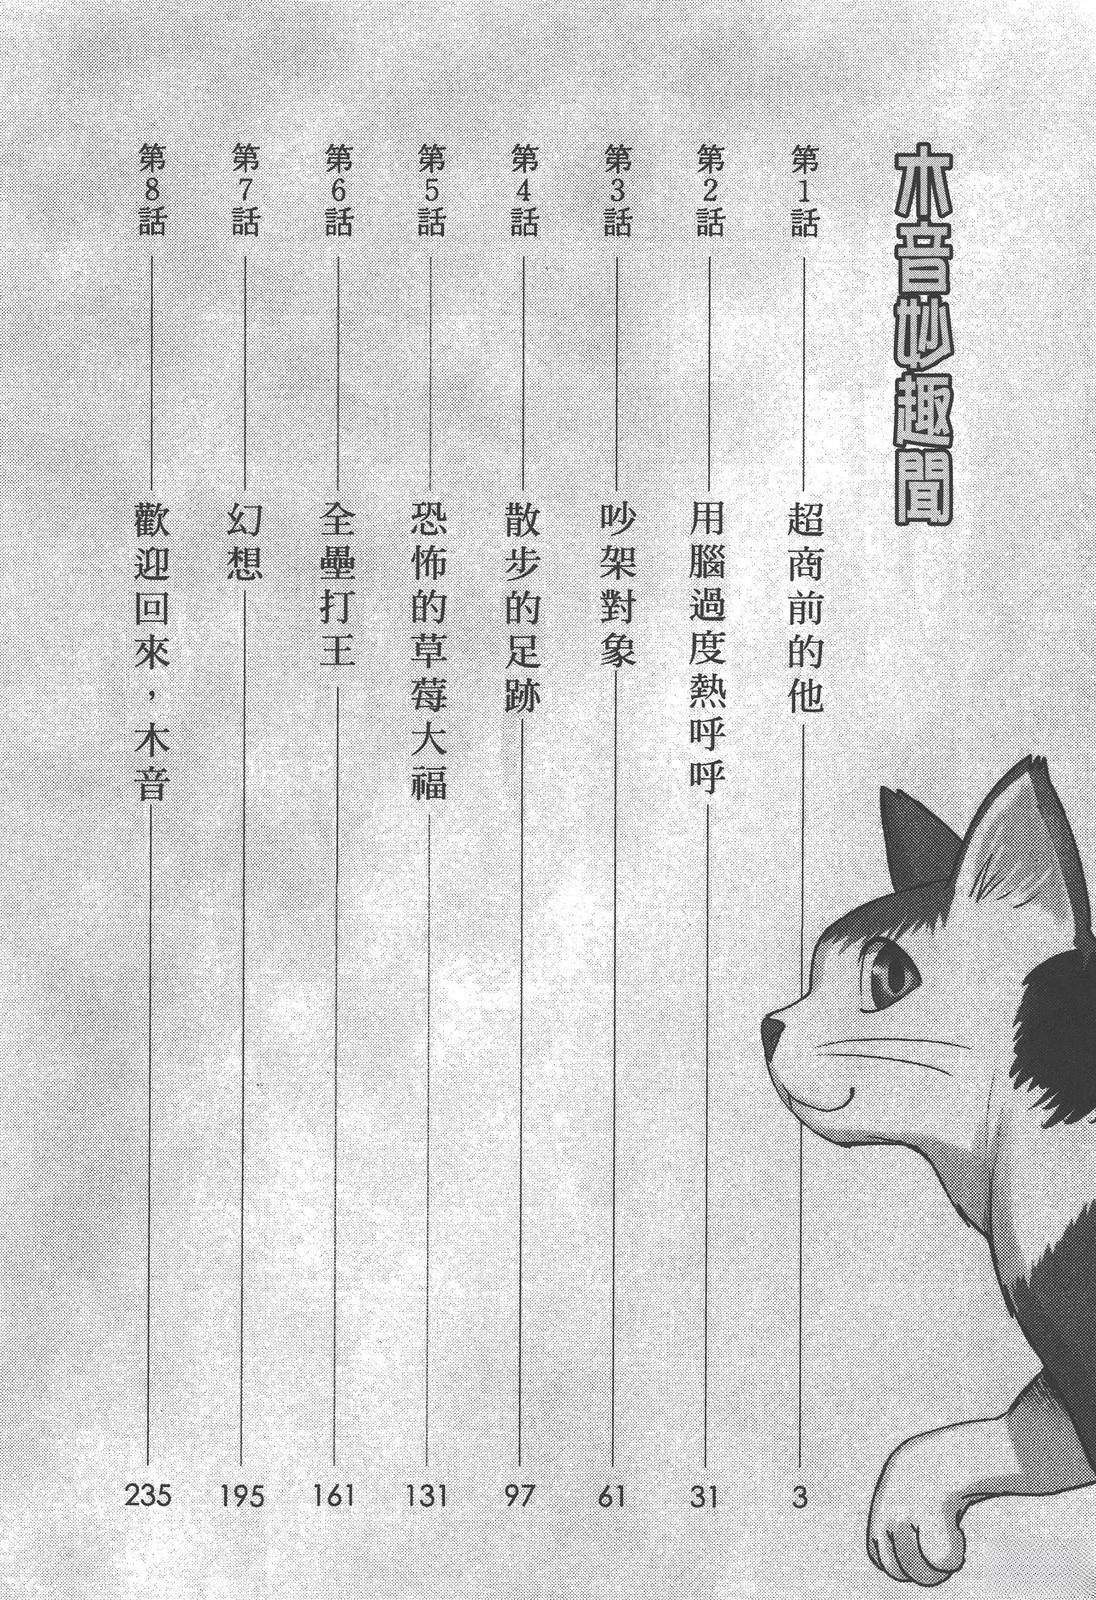 木音妙趣聞
第1話 超商前的他 3
第2話 用腦過度熱呼呼 31
第3話 吵架對象 61
第4話 散步的足跡 97
第5話 恐怖的草莓大福 131
第6話 全壘打王 161
第7話 幻想 195
第8話 歡迎回來，木音 235